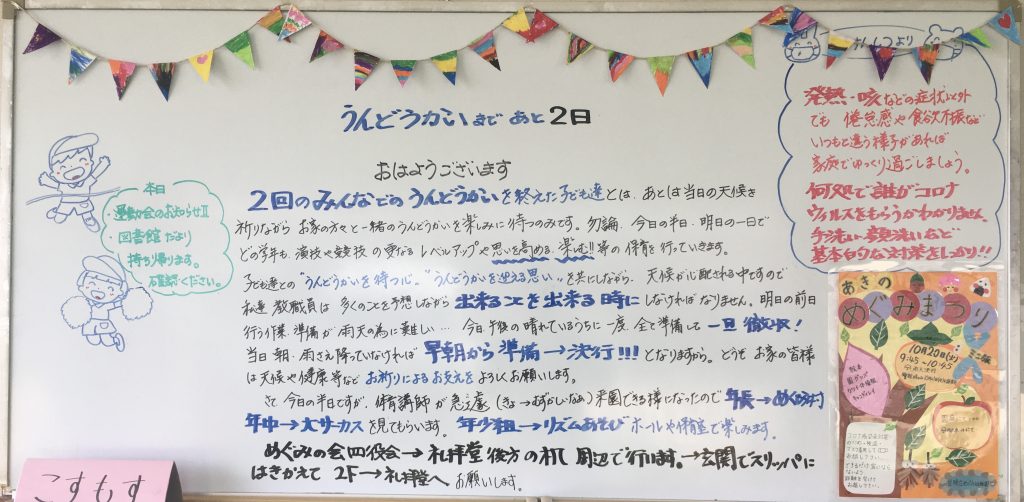 うんどうかいまで あと2日
おはようございます
2回のみんなでのうんどうかいを終えた子ども達とは、あとは当日の天候を
祈りながら お家の方々と一緒のうんどうかいを楽しみに待つのみです。勿論、今日の半日、明日の一日で
どの学年も、演技や競技の更なるレベルアップや思いを高める、楽しむ!!等の保育を行っていきます。
子ども達との"うんどうかいを待つ心" "うんどうかいを迎える思い"を共にしながら、天候が心配される中ですので
私達 教職員は 多くのことを予想しながら 出来ることを出来る時に しなければなりません。明日の前日
行う作業、準備が雨天の為に難しい… 今日午後の晴れているうちに一度、全て準備して 一旦撤収!
当日朝、雨さえ降っていなければ 早朝から準備→決行!!! となりますから、どうぞ お家の皆様
は天候や健康等など お祈りによるお支えを よろしくお願いします。
さて 今日の半日ですが、体育講師が急遽(きょ→むずかしいなあ)来園できる様になったので 年長→めぐみ
年中→大サーカスを見てもらいます。年少組→リズムあそび ホールや保育室で楽しみます。
めぐみの会四役会→礼拝堂後方の机 周辺で行います。→玄関でスリッパに
はきかえて 2F→礼拝堂へ。お願いします。
本日
・運動会のお知らせⅡ
・図書館だより
持ち帰ります。
確認ください。
発熱・咳などの症状以外
でも 倦怠感や食欲不振など
いつもと違う様子があれば
家庭でゆっくり過ごしましょう。
何処で誰がコロナ
ウィルスをもらうかわかりません。
手洗い・
基本的な対策をしっかり!!
あきの
めぐみまつり
10月20日
9:45〜10:45
こすもす